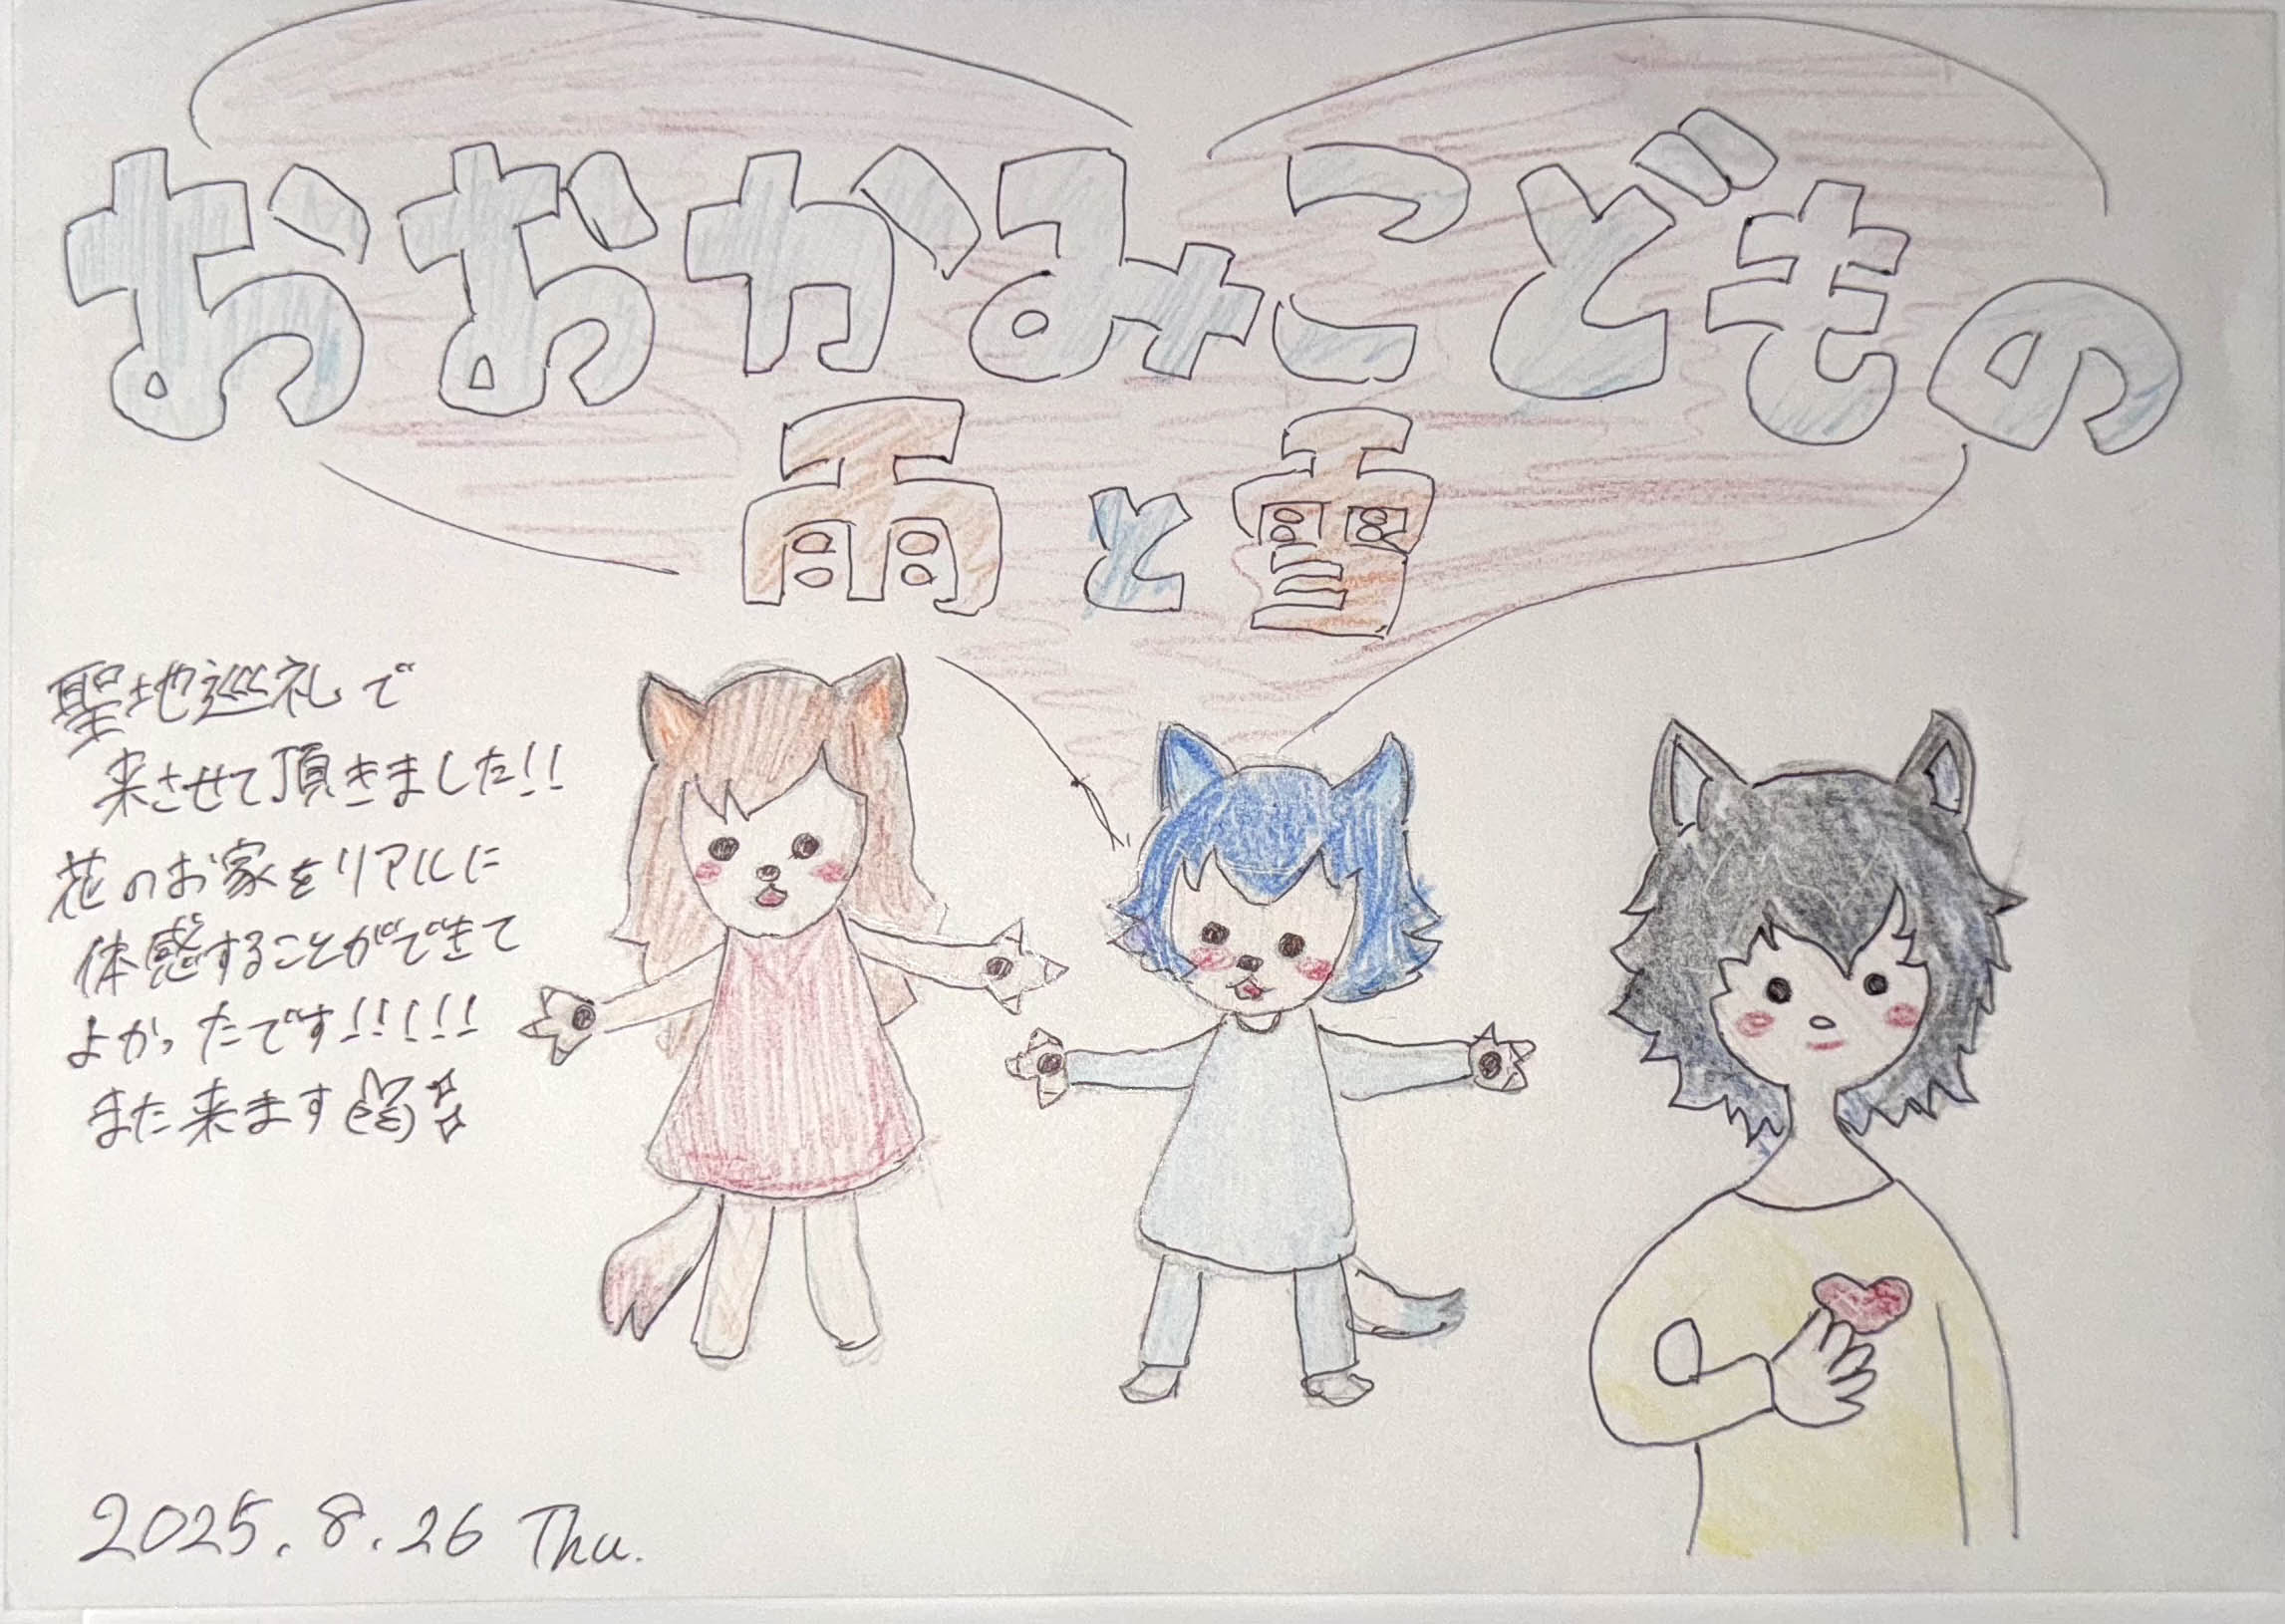 おおかみこどもの
雨と雪
聖地巡礼で
来させて頂きました!!
花のお家をリアルに
体感することができて
よかったです!!!!!
また来ます
2025.8.26 Thu.